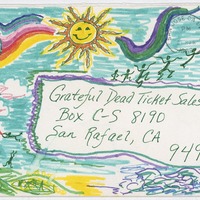 Grateful Dead Ticket Sales
Box C-S 8190
San Rafael, CA
949